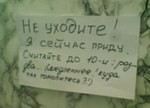 Не уходите!
Я сейчас приду.
Считайте до 10-и: раз
два... (медленнее! куда
так торопитесь?!)